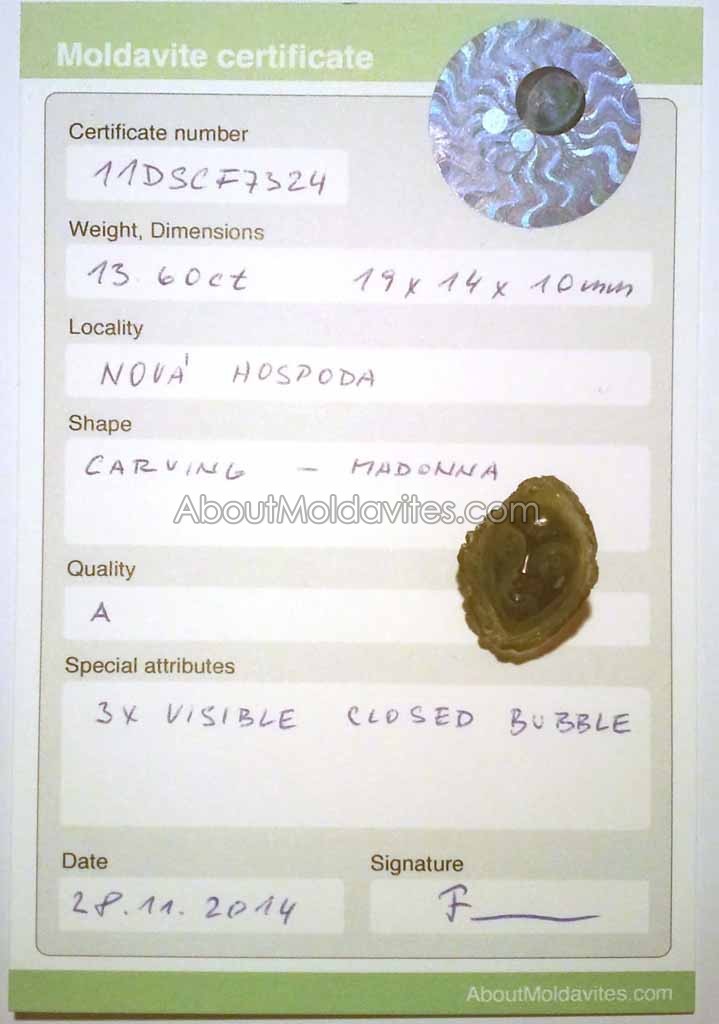 Moldavite certificate
Certificate number
11DSCF7324
Weight, Dimensions
13.60ct 19 x 14 x 10mm
Locality
NOVÁ HOSPODA
Shape
CARVING - MADONNA
AboutMoldavites.com
Quality
A
Special attributes
3X VISIBLE CLOSED BUBBLE
Date Signature
28.11.2014
AboutMoldavites.com